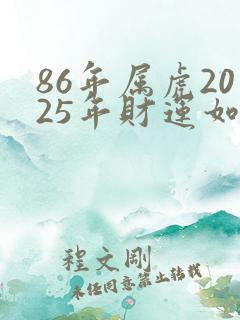 86年属虎20
25年财运如
程文刚
未经同意禁止转载